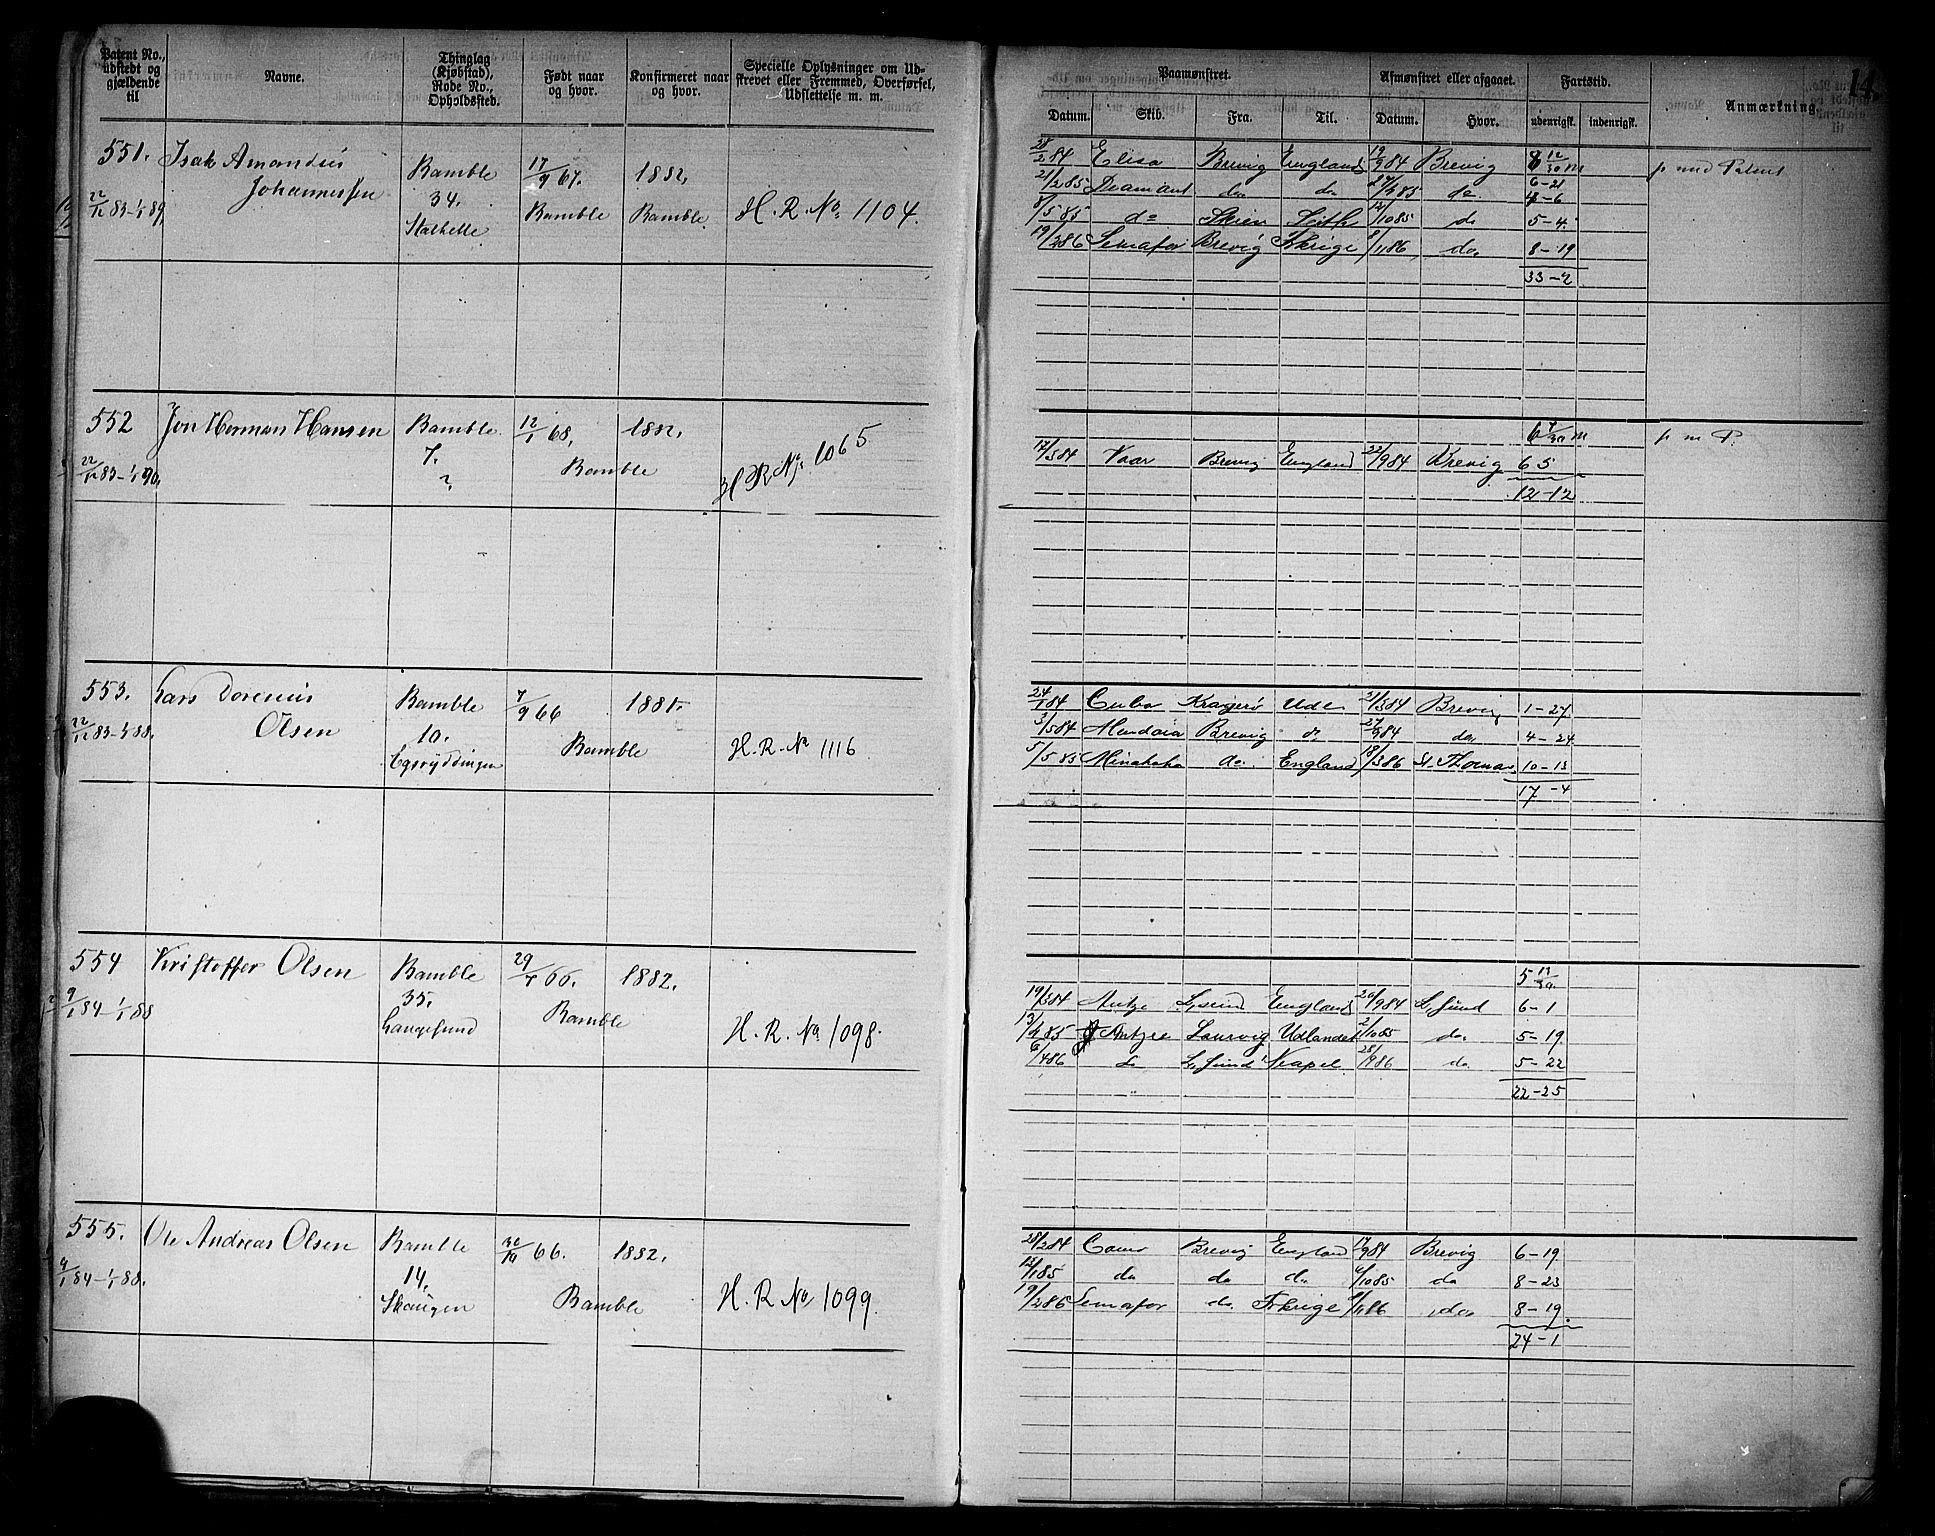 Patent No., udstedt og gjældende til
Navne.
Thinglag (Kjøbstad), Rode No., Opholdssted.
Født naar og hvor.
Konfirmeret naar og hvor.
Specielle Oplysninger om Udskrevet eller Fremmed, Overførsel, Udslettelse m. m.
Paamønstret.
Afmønstret eller afgaaet.
Fartstid.
Anmærkning.
Datum. Skib. Fra. Til. Datum. Hvor. udenrigsk. indenrigsk.
551. Isak Amandus Johannessen
22/12 83-1/1 89
Bamble 34. Stathelle
17/9 67. Bamble
1882, Bamble
H. R. No. 1104.
28/2 84 Elisa Brevig England 19/9 84 Brevig 8 12/30 m p med Patent
21/2 85 Diamant do do 27/8 85 do 6-21
4-6
8/5 85 do Skien 12/10 85 do 5-4
19/2 86 Semafor Brevig Frkrige 8/11 86 do. 8-19
33-2
552 Jon Herman Hansen
22/12 83-1/1 90,
Bamble 7. ?
12/1 68, Bamble
1882,
H R No. 1065
6 7/30 m p m P.
17/3 84 Vaar Brevig England 22/9 84 Brevig 6 5
12-12
553. Lars Dorenius Olsen
22/12 83-1/1 88.
Bamble 10. Egsrýddingen
7/9 66 Bamble
1881.
H. R. No 1116
24/1 84 Cuba Kragerø Udl 21/3 84 Brevig 1-27
3/5 84 Brevig do 27/9 84 do. 4-24
5/5 85 Minahaha do. England 18/3 86 St. Thomas 10-13
17-4
554 Kristoffer Olsen
9/1 84-1/1 88
Bamble 35. Langesund
29/ 66. Bamble
1882.
H. R. No 1098.
19/3 84 Antze L, sund England 20/9 84 L, Sund 6-1
13/4 85 Antzee Laurvig Udlandet 2/10 85 do. 5-19
6/4 86 do L, Sund Neapel 28/9 86 do 5-22
22-25
555. Ole Andreas Olsen
9/1 84-1/1 88.
Bamble 14, Skaugen
30/10 66. Bamble
1882.
H. R. No 1099.
28/2 84 Brevig England 17/9 84 Brevig 6-19
12/1 85 do do do 4/10 85 do 8-23
19/2 86 Semafor do. Frkrige 8/11 86 do. 8-19.
24-1